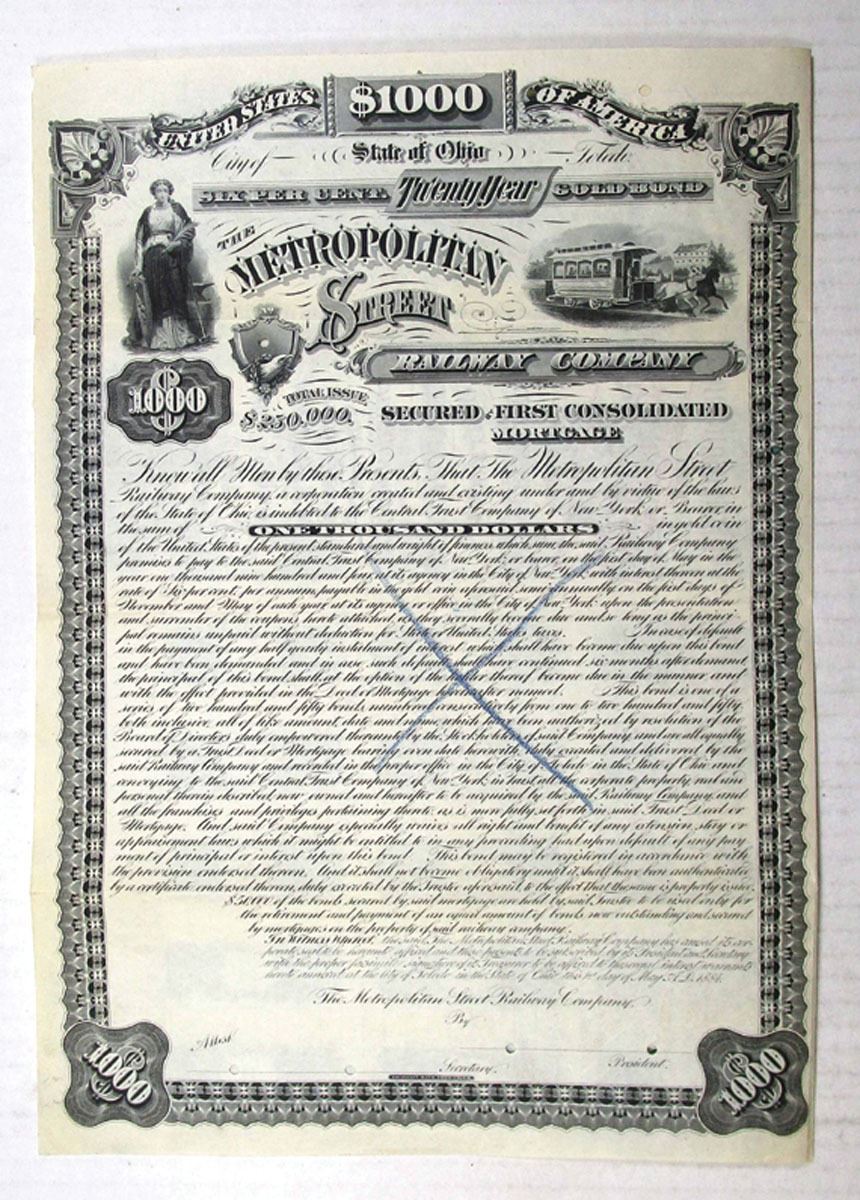 UNITED STATES $1000 OF AMERICA
City of State of Ohio Toledo.
SIX PER CENT. Twenty Year GOLD BOND
THE
METROPOLITAN
STREET
RAILWAY COMPANY
$1000
TOTAL ISSUE
$250,000.
SECURED FIRST CONSOLIDATED
MORTGAGE
Know all Men by these Presents, That The Metropolitan Street
Railway Company, a corporation created and existing under and by virtue of the laws
of the State of Ohio, is indebted to the Central Trust Company of New York or Bearer in
the sum of ONE THOUSAND DOLLARS in gold coin
of the United States of the present standard and weight of fineness, which sum, the said Railway Company
promises to pay to the said Central Trust Company of New York, or bearer, on the first day of May in the
year one thousand nine hundred and four, at its agency in the City of New York, with interest thereon at the
rate of Six per cent. per annum, payable in the gold coin aforesaid semi annually on the first days of
November and May of each year at its agency or office in the City of New York upon the presentation
and surrender of the coupons hereto attached, as they severally become due and so long as the princi-
pal remains unpaid without deduction for State or United States taxes. In case of default
in the payment of any half yearly instalment of interest which shall have become due upon this bond
and have been demanded and in case such default shall have continued six months after demand,
the principal of this bond shall, at the option of the holder thereof become due in the manner and
with the effect provided in the Deed or Mortgage hereinafter named. This bond is one of a
series of two hundred and fifty bonds, numbered consecutively from one to two hundred and fifty,
both inclusive, all of like amount, date and name, which have been authorized by resolution of the
Board of Directors, duly empowered thereunto by the Stockholders of said Company and are all equally
secured by a Trust Deed or Mortgage bearing even date herewith, duly executed and delivered by the
said Railway Company and recorded in the proper office in the City of Toledo in the State of Ohio and
conveying to the said Central Trust Company of New York in Trust, all the corporate property, real and
personal therein described, now owned and hereafter to be acquired by the said Railway Company and
all the franchises and privileges pertaining thereto, as is more fully set forth in said Trust Deed or
Mortgage. And said Company especially waives all right and benefit of any extension, stay or
appraisement laws which it might be entitled to in any proceeding had upon default of any pay-
ment of principal or interest upon this bond. This bond may be registered in accordance with
the provision endorsed thereon. And it shall not become obligatory until it shall have been authenticated
by a certificate endorsed thereon, duly executed by the Trustee aforesaid to the effect that the same is properly issued.
of the bonds secured by said mortgage are held by said Trustee to be used only for
the retirement and payment of an equal amount of bonds now outstanding and secured
by mortgage on the property of said railway company.
In Witness Whereof, the said, The Metropolitan Street Railway Company has caused its cor-
porate seal to be hereunto affixed and these presents to be subscribed by its President and Secretary
with the proper facsimile signature of its Treasurer to be affixed to the several interest warrants
hereto annexed at the City of Toledo in the State of Ohio this 1st day of May A.D. 1884.
The Metropolitan Street Railway Company.
By
Attest
Secretary. President.
$1000 $1000